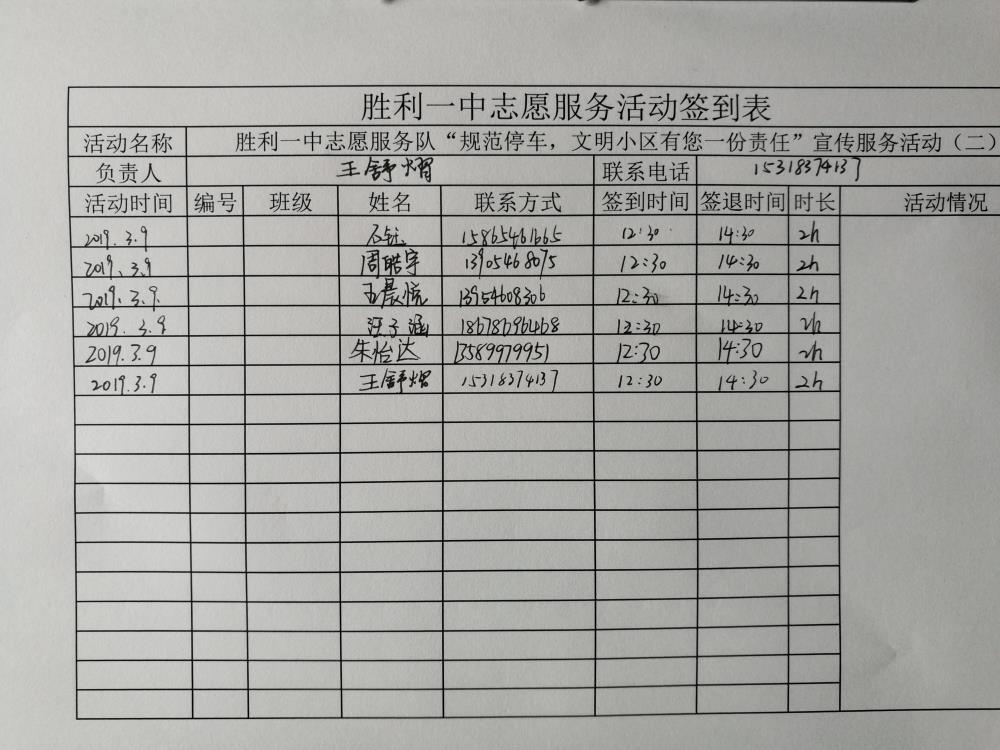 胜利一中志愿服务活动签到表
活动名称 胜利一中志愿服务队“规范停车，文明小区有您一份责任”宣传服务活动（二）
负责人 王舒熠 联系电话 15318374137
活动时间 编号 班级 姓名 联系方式 签到时间 签退时间 时长 活动情况
2019.3.9 石钰 15865461665 12:30 14:30 2h
2019.3.9 周皓宇 13905468075 12:30 14:30 2h
2019.3.9. 王晨悦 13954608306 12:30 14:30 2h
2019.3.9 汪子涵 18678696468 12:30 14:30 2h
2019.3.9 朱怡达 13589979951 12:30 14:30 2h
2019.3.9 王舒熠 15318374137 12:30 14:30 2h